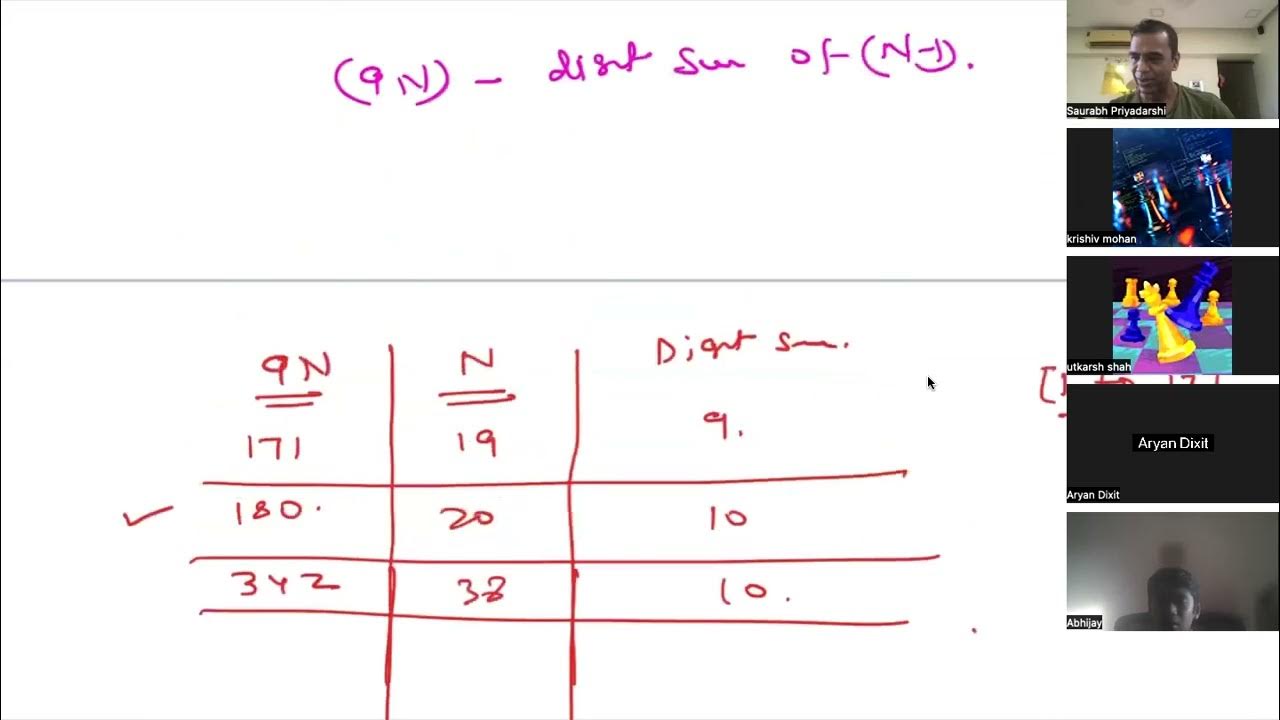 (9N) - digit sum of (N-1).
Saurabh Priyadarshi
krishiv mohan
utkarsh shah
9N N Digit sum.
171 19 9.
Aryan Dixit
Aryan Dixit
180. 20 10
342 38 10.
Abhijay